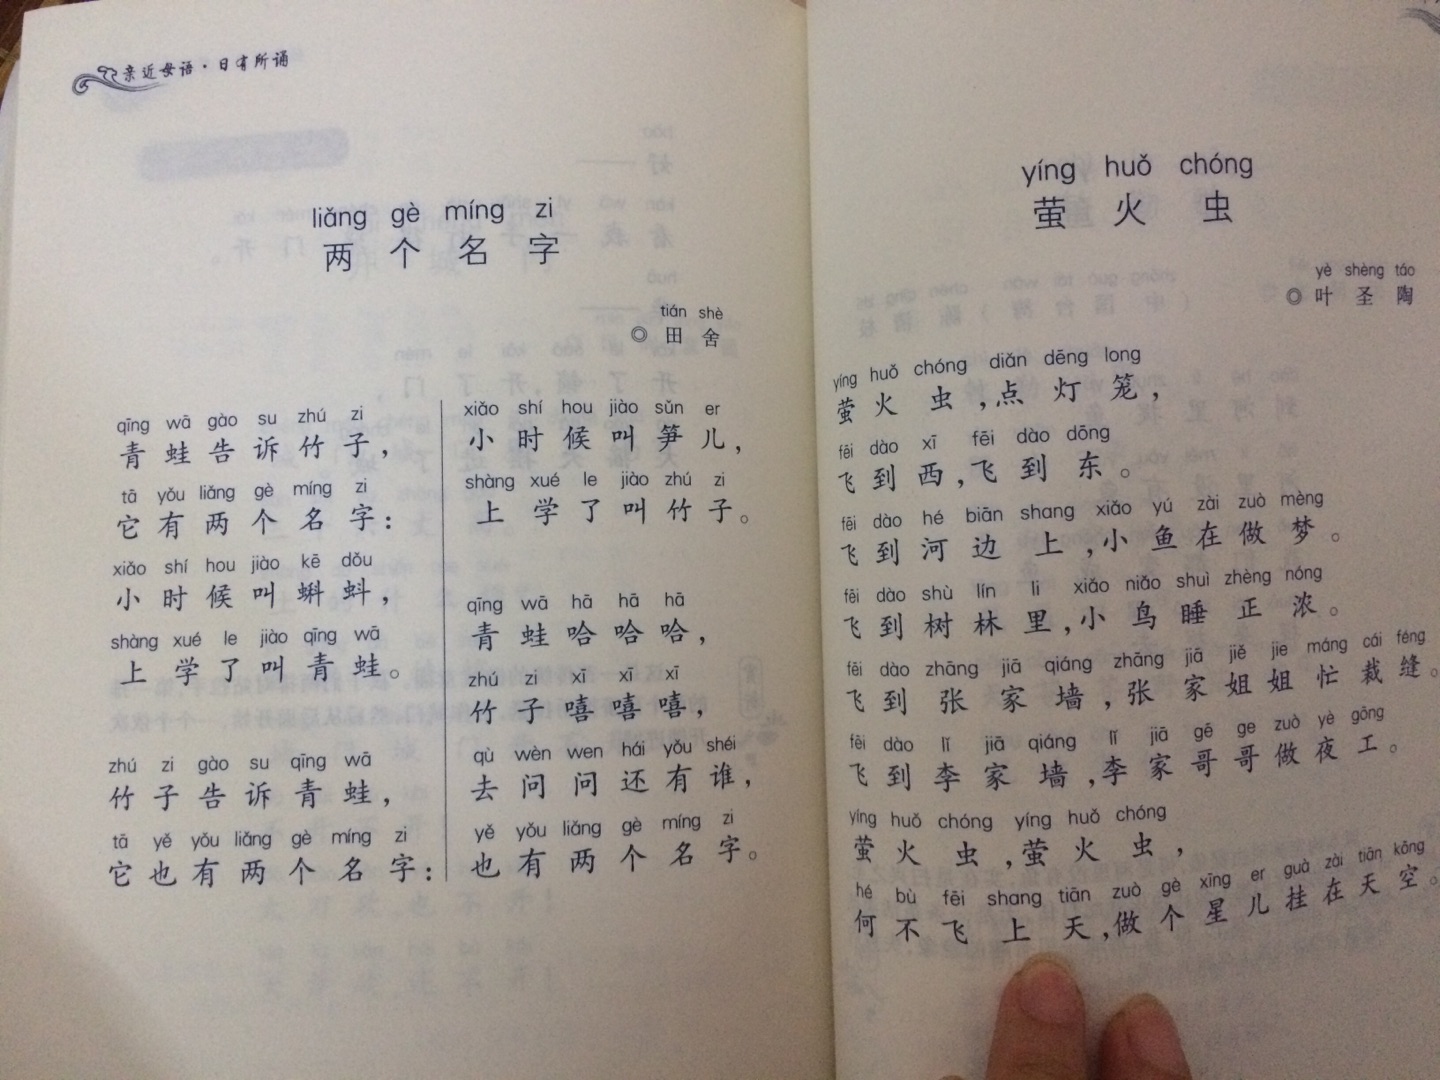 亲近母语·日有所诵
liǎng gè míng zi
两个名字
tián shè
◎田舍
qīng wā gào su zhú zi
青蛙告诉竹子，
tā yǒu liǎng gè míng zi
它有两个名字：
xiǎo shí hou jiào kē dǒu
小时候叫蝌蚪，
shàng xué le jiào qīng wā
上学了叫青蛙。
zhú zi gào su qīng wā
竹子告诉青蛙，
tā yě yǒu liǎng gè míng zi
它也有两个名字：
xiǎo shí hou jiào sǔn er
小时候叫笋儿，
shàng xué le jiào zhú zi
上学了叫竹子。
qīng wā hā hā hā
青蛙哈哈哈，
zhú zi xī xī xī
竹子嘻嘻嘻，
qù wèn wen hái yǒu shéi
去问问还有谁，
yě yǒu liǎng gè míng zi
也有两个名字。
yíng huǒ chóng
萤火虫
yè shèng táo
◎叶圣陶
yíng huǒ chóng diǎn dēng long
萤火虫，点灯笼，
fēi dào xī fēi dào dōng
飞到西，飞到东。
fēi dào hé biān shang xiǎo yú zài zuò mèng
飞到河边上，小鱼在做梦。
fēi dào shù lín li xiǎo niǎo shuì zhèng nóng
飞到树林里，小鸟睡正浓。
fēi dào zhāng jiā qiáng zhāng jiā jiě jie máng cái féng
飞到张家墙，张家姐姐忙裁缝。
fēi dào lǐ jiā qiáng lǐ jiā gē ge zuò yè gōng
飞到李家墙，李家哥哥做夜工。
yíng huǒ chóng yíng huǒ chóng
萤火虫，萤火虫，
hé bù fēi shang tiān zuò gè xīng er guà zài tiān kōng
何不飞上天，做个星儿挂在天空。